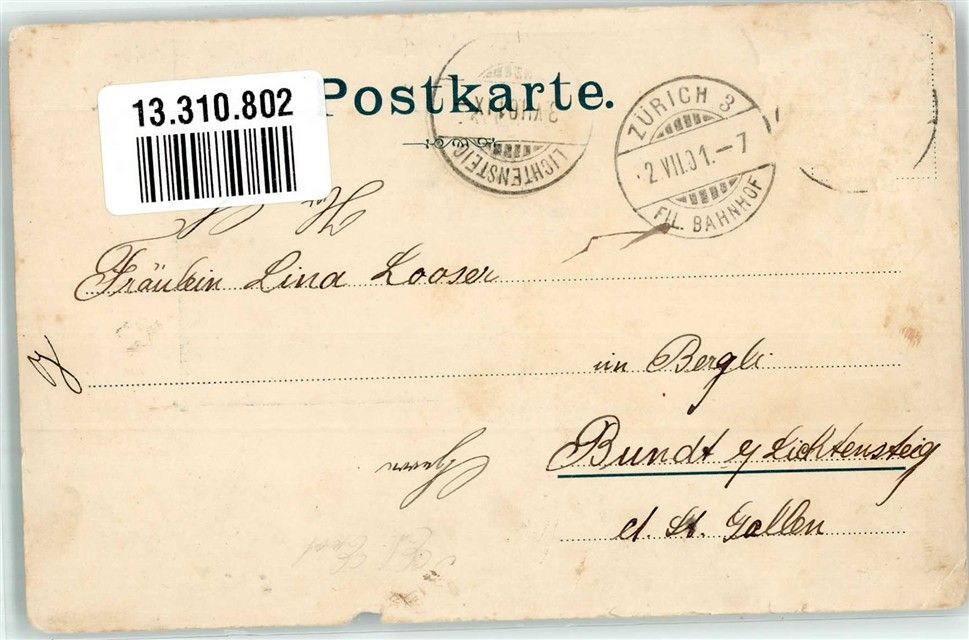 13.310.802
Postkarte.
LICHTENSTEIG
ZÜRICH 3
2.VII.01.–7
FIL. BAHNHOF
Fräulein Lina Looser
im Bergli
Bundt y/ Lichtensteig
ct. St. Gallen
Herrn